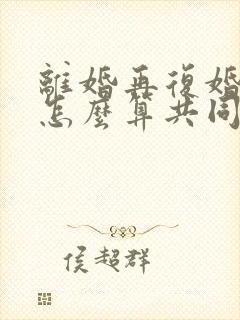 離婚再復婚
怎麼算共同
侯超群